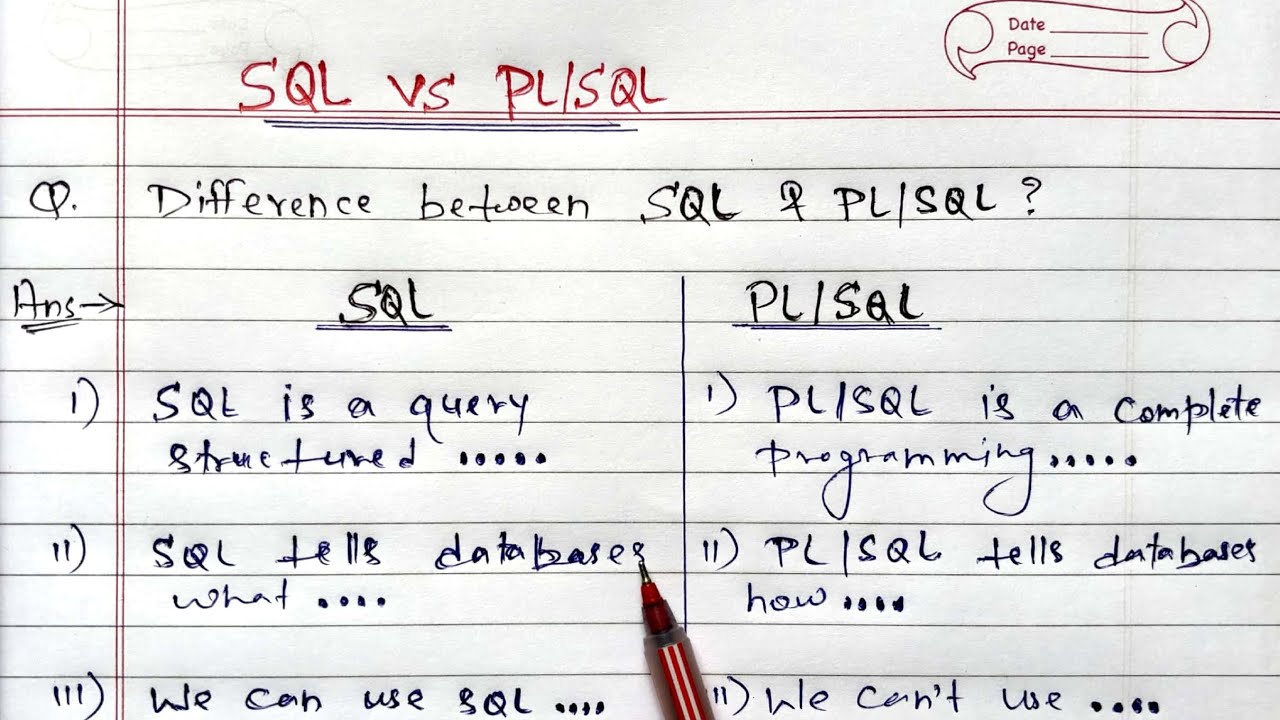 Date
Page
SQL vs PL/SQL
Q. Difference between SQL & PL/SQL?
Ans→ SQL
PL/SQL
I) SQL is a query
structured .....
I) PL/SQL is a complete
programming.....
II) SQL tells databases
what ....
II) PL/SQL tells databases
how....
III) We can use SQL ....
II) We can't use ....